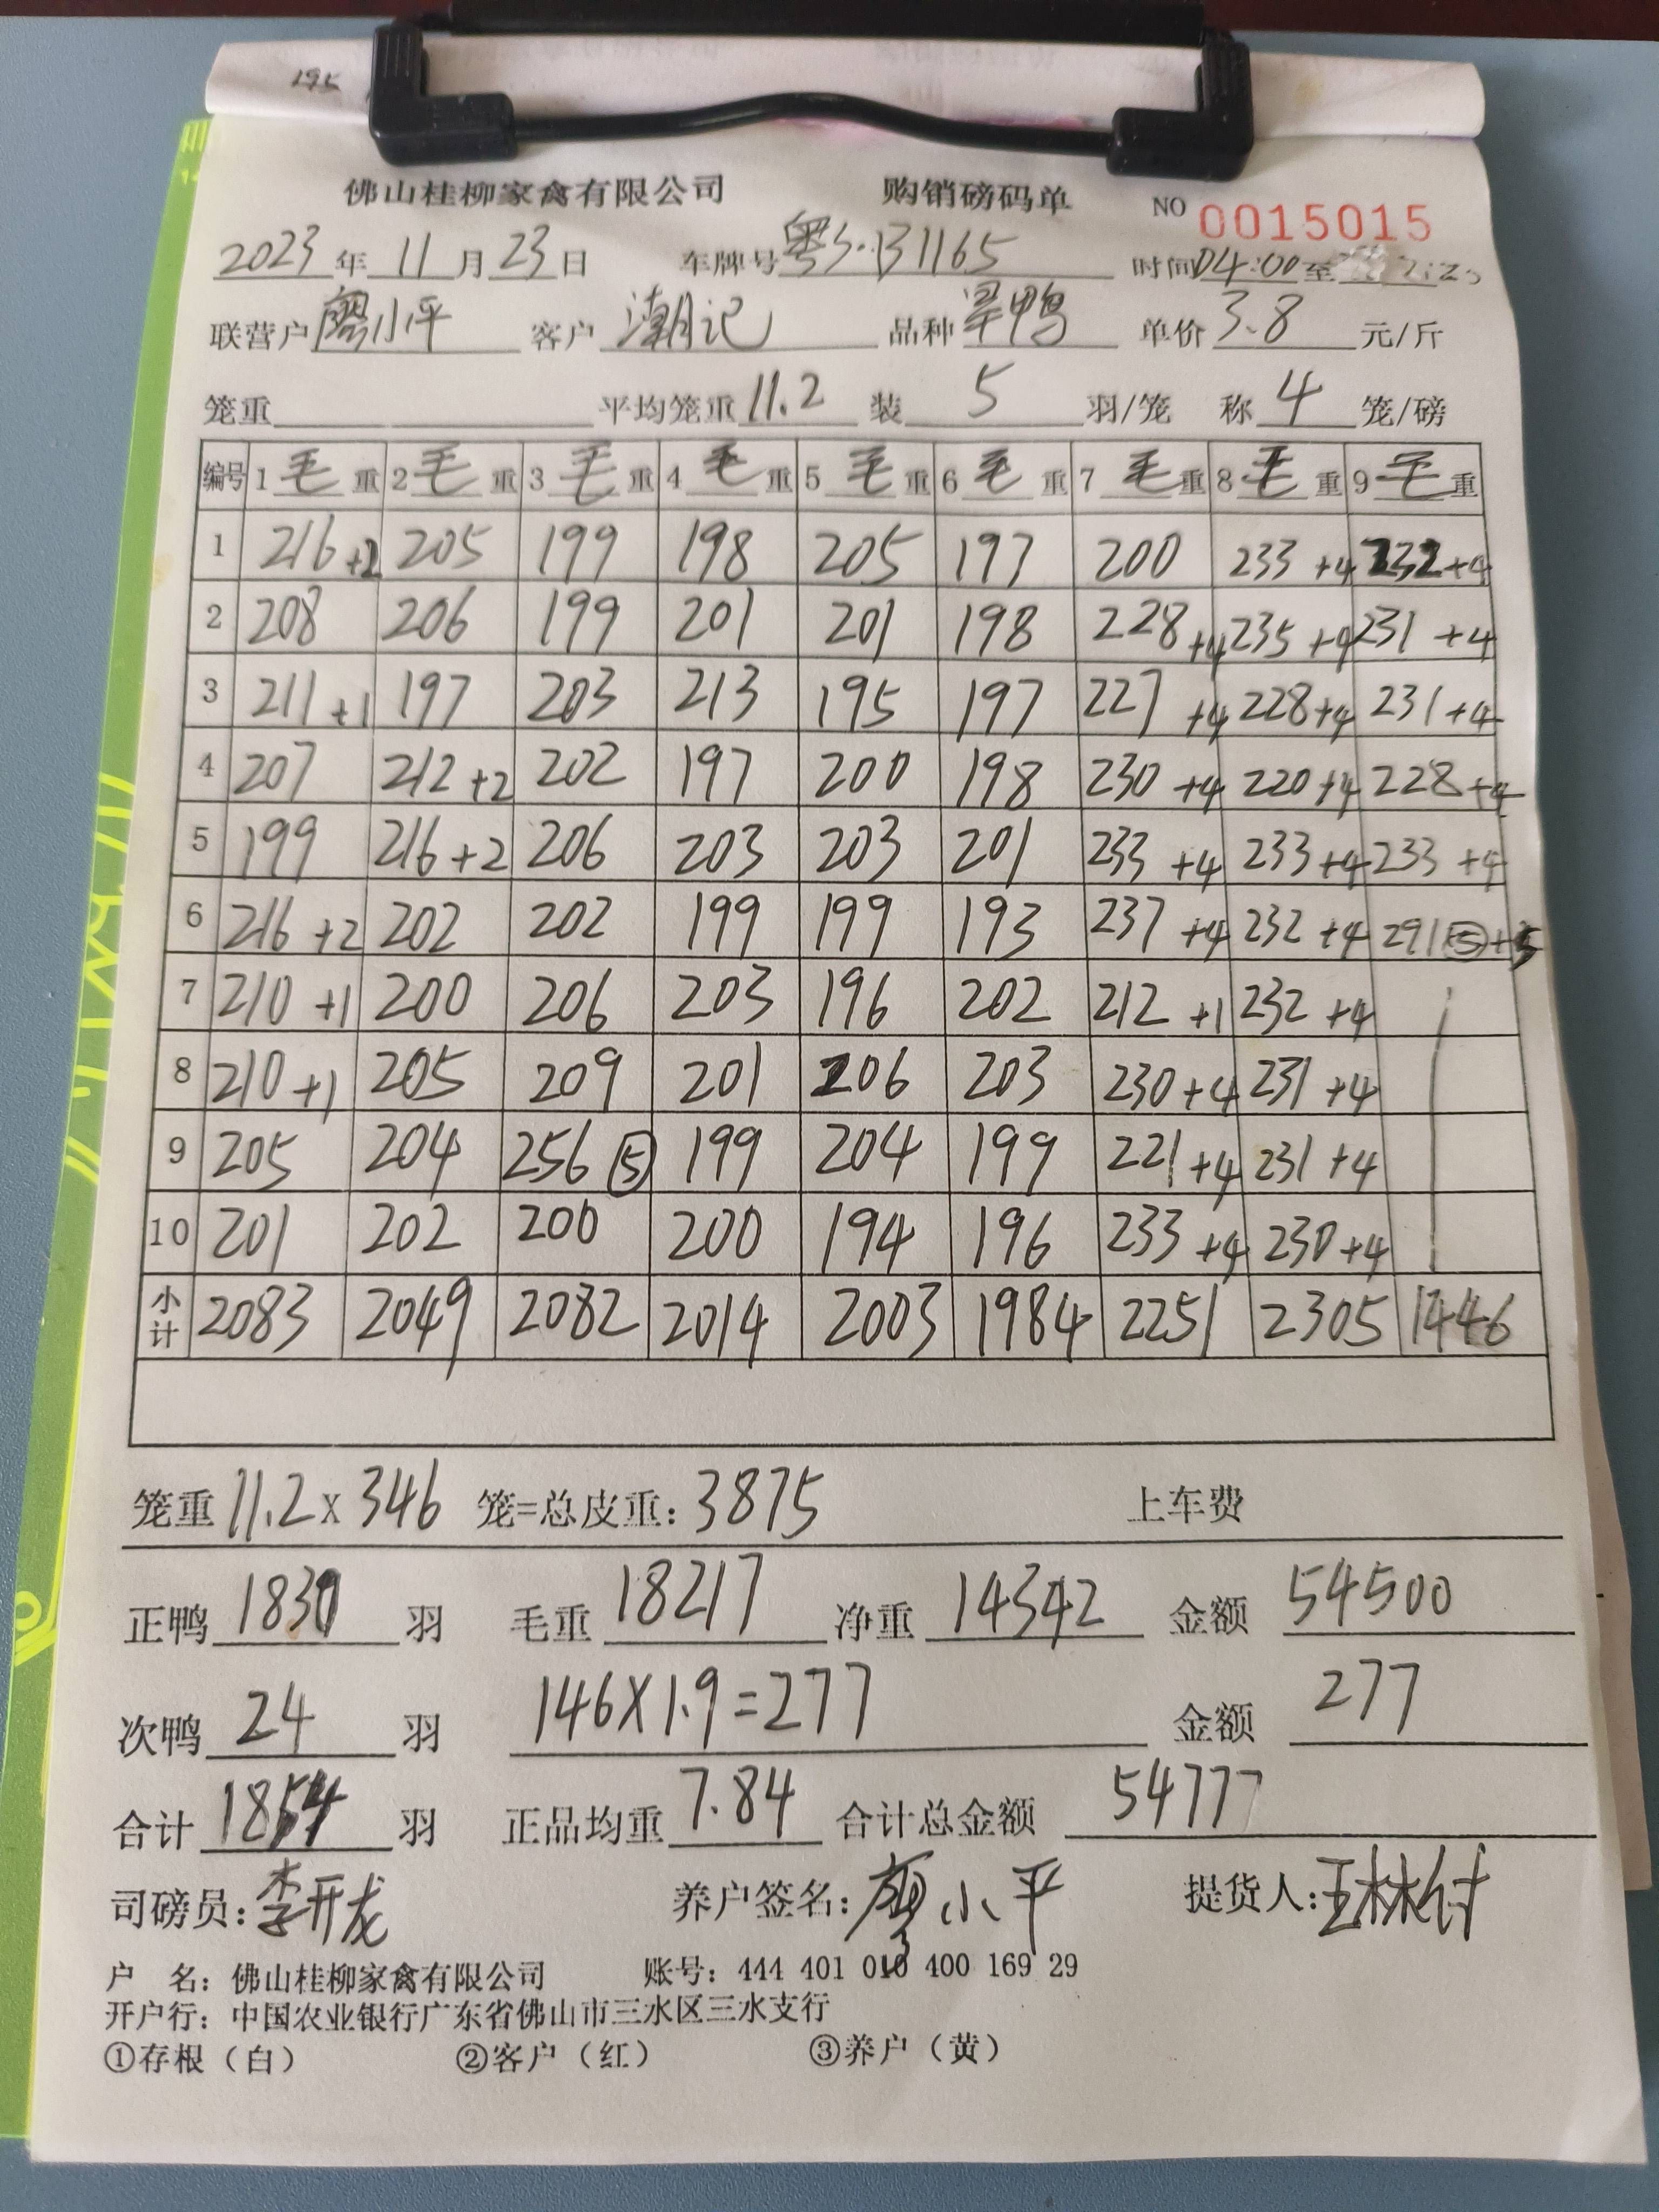 195
佛山桂柳家禽有限公司 购销磅码单 NO 0015015
2023年11月23日 车牌号粤S·131165 时间04:00至
联营户廖小平 客户潮记 品种单鸭 单价3.8元/斤
笼重 平均笼重11.2 装5羽/笼 称4笼/磅
编号 1毛重 2毛重 3毛重 4毛重 5毛重 6毛重 7毛重 8毛重 9毛重
1 216+2 205 199 198 205 197 200 233+4 232+4
2 208 206 199 201 201 198 228+4 235+4 231+4
3 211+1 197 203 213 195 197 227+4 228+4 231+4
4 207 212+2 202 197 200 198 230+4 220+4 228+4
5 199 216+2 206 203 203 201 233+4 233+4 233+4
6 216+2 202 202 199 199 193 237+4 232+4 291⑤+5
7 210+1 200 206 203 196 202 212+1 232+4
8 210+1 205 209 201 206 203 230+4 231+4
9 205 204 256⑤ 199 204 199 221+4 231+4
10 201 202 200 200 194 196 233+4 230+4
小计 2083 2049 2082 2014 2003 1984 2251 2305 1446
笼重11.2x346笼=总皮重:3875 上车费
正鸭1830羽 毛重18217 净重14342 金额54500
次鸭24羽 146x1.9=277 金额277
合计1854羽 正品均重7.84 合计总金额54777
司磅员:李开龙 养户签名:廖小平 提货人:王林付
户 名:佛山桂柳家禽有限公司 账号:444 401 010 400 169 29
开户行:中国农业银行广东省佛山市三水区三水支行
①存根（白） ②客户（红） ③养户（黄）